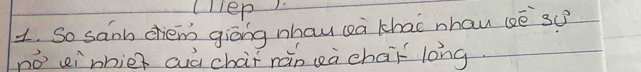 (Tiếp).
1. So sánh điểm giống nhau và khác nhau về sự
nở vì nhiệt của chất rắn và chất lỏng.